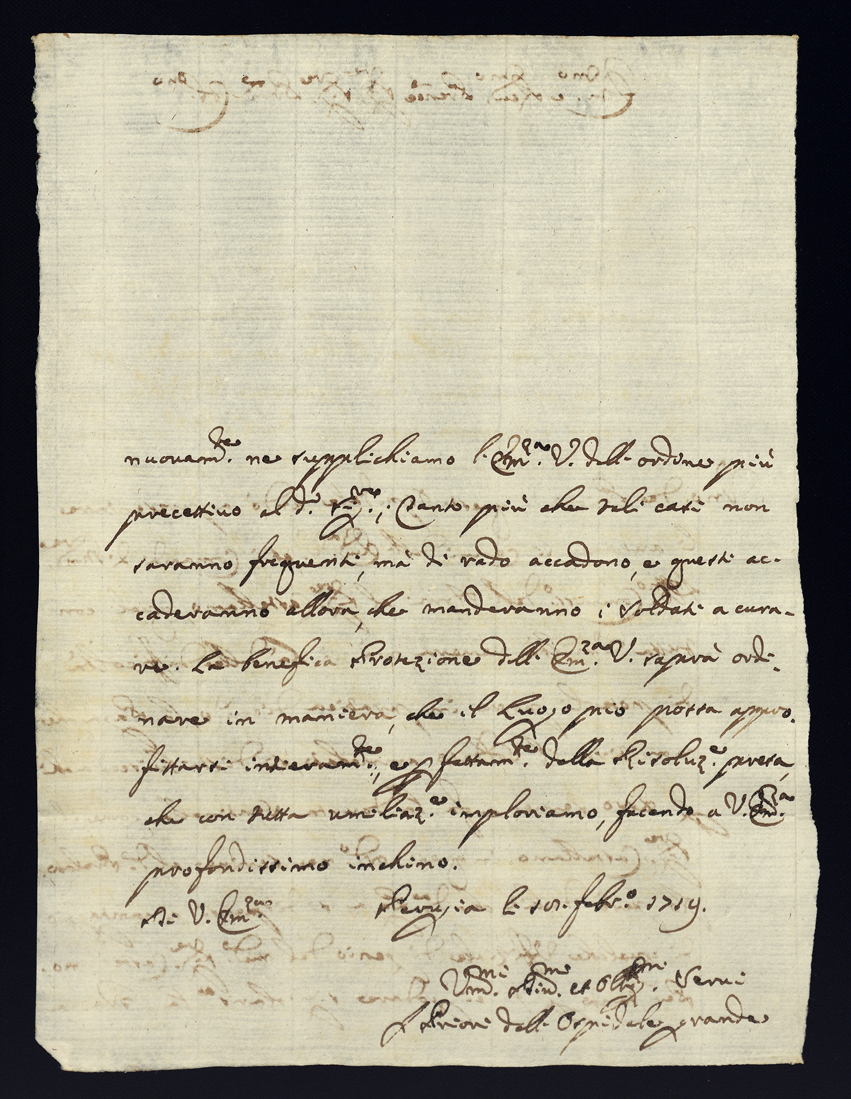 nuovam.te ne supplichiamo l'Em.za V. dell'ordine più
precettivo al d.o; Tanto più che tali casi non
saranno frequenti, mà di rado accadono, e questi ac-
caderanno allora, che manderanno i soldati a cura-
re. La benefica Protezione dell'Em.za V. saprà ordi-
nare in maniera, che il Luogo pio possa appro-
fittarsi interam.te, e pfettam.te della Risoluz.e presa,
che con tutta umiliaz.e imploriamo, facendo a V. Em.za
profondissimo inchino.
Di V. Em.za Perugia li febr.o 1719.
Um.mi Div.mi et Obb.mi Servi
I Priori dell'Ospidale grande